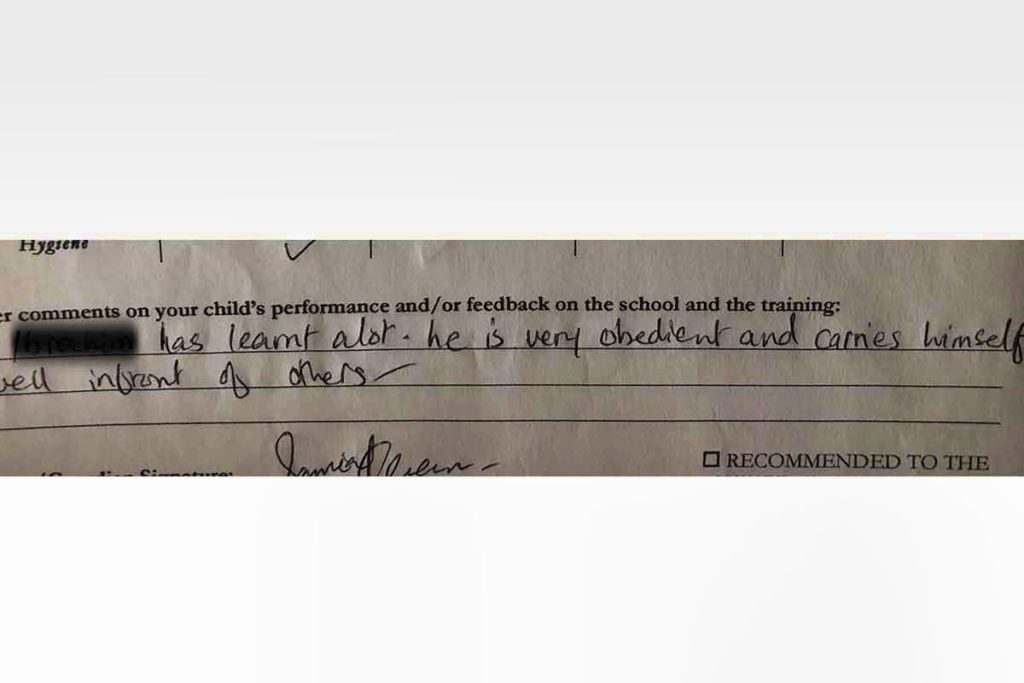 Hygiene
er comments on your child's performance and/or feedback on the school and the training:
has learnt alot. he is very obedient and carries himself
well infront of others
Signature:
RECOMMENDED TO THE